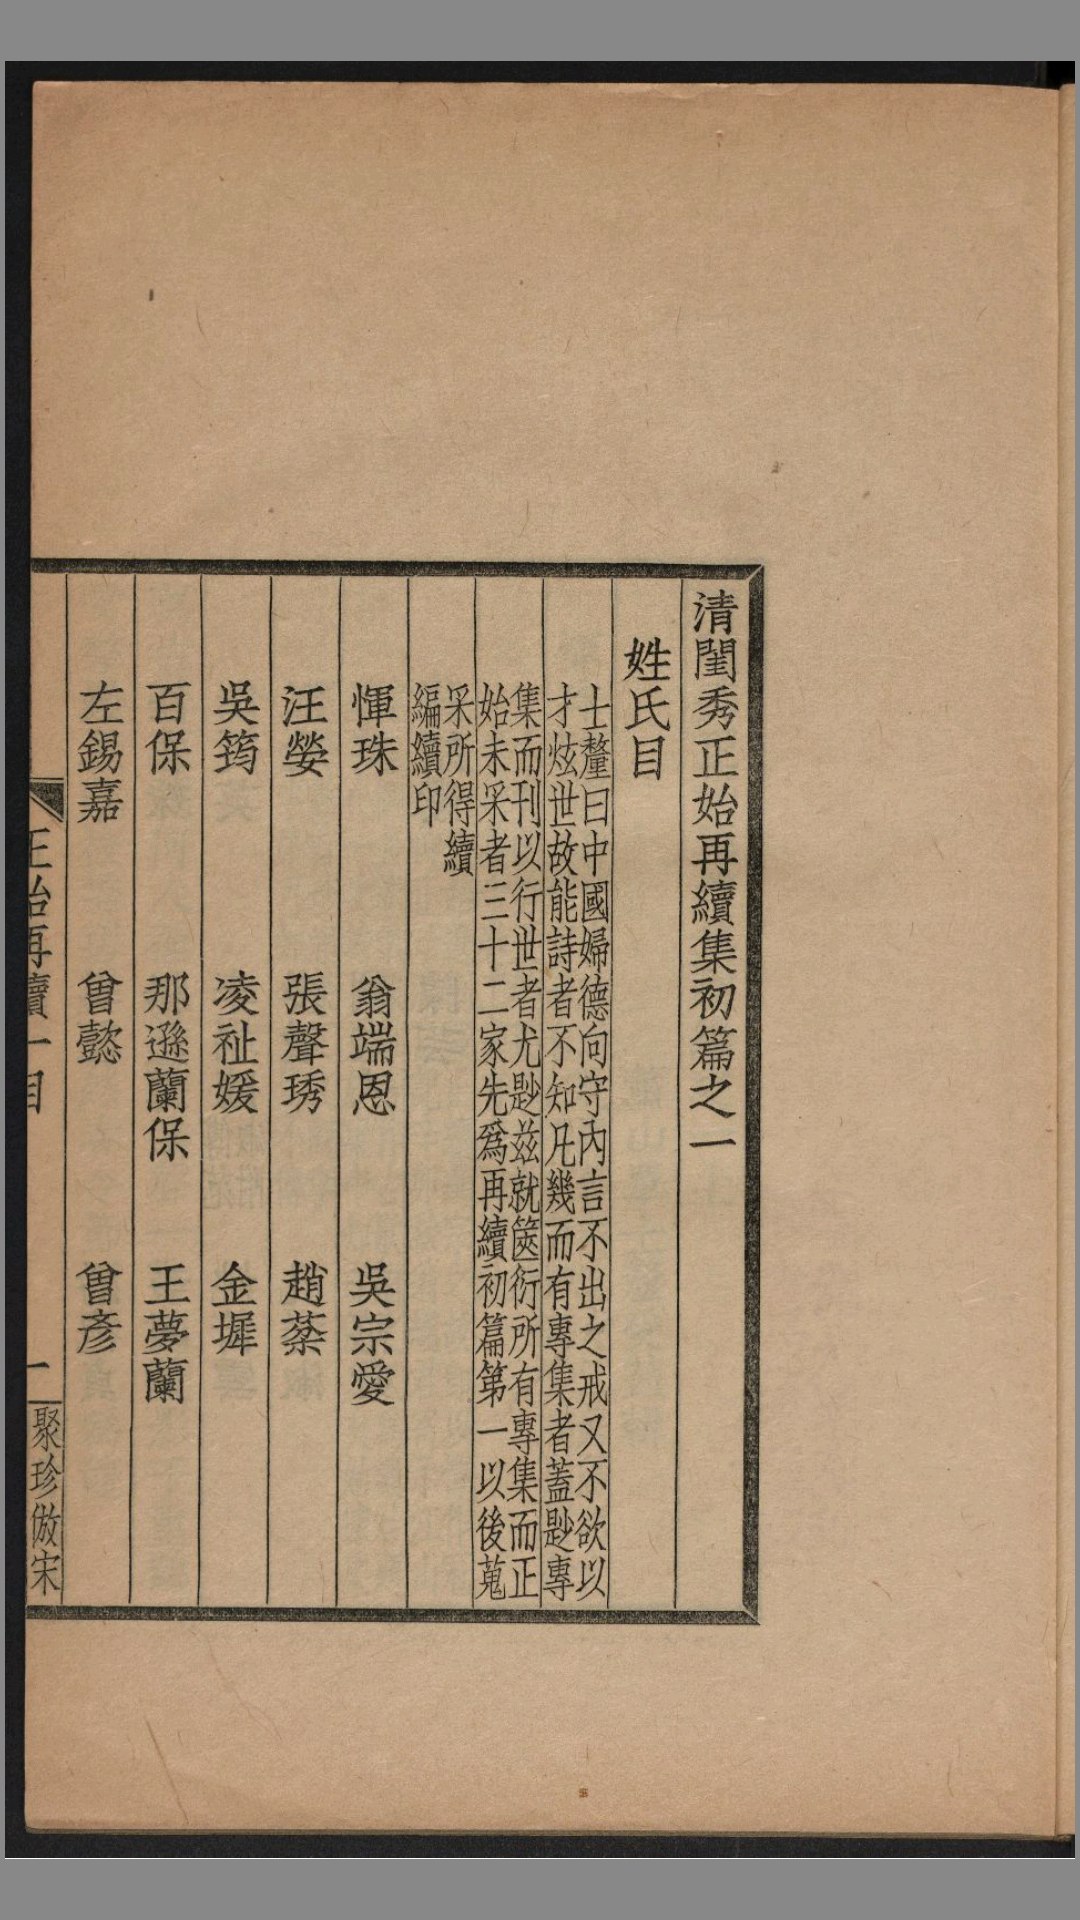 清閨秀正始再續集初篇之一
姓氏目
士釐曰中國婦德向守內言不出之戒又不欲以
才炫世故能詩者不知凡幾而有專集者蓋尟專
集而刊以行世者尤尟茲就篋衍所有專集而正
始未采者三十二家先爲再續初篇第一以後蒐
采所得續
編續印
惲珠 翁端恩 吳宗愛
汪嫈 張聲琇 趙棻
吳筠 凌祉媛 金墀
百保 那遜蘭保 王夢蘭
左錫嘉 曾懿 曾彥
正始再續一目 一 聚珍倣宋